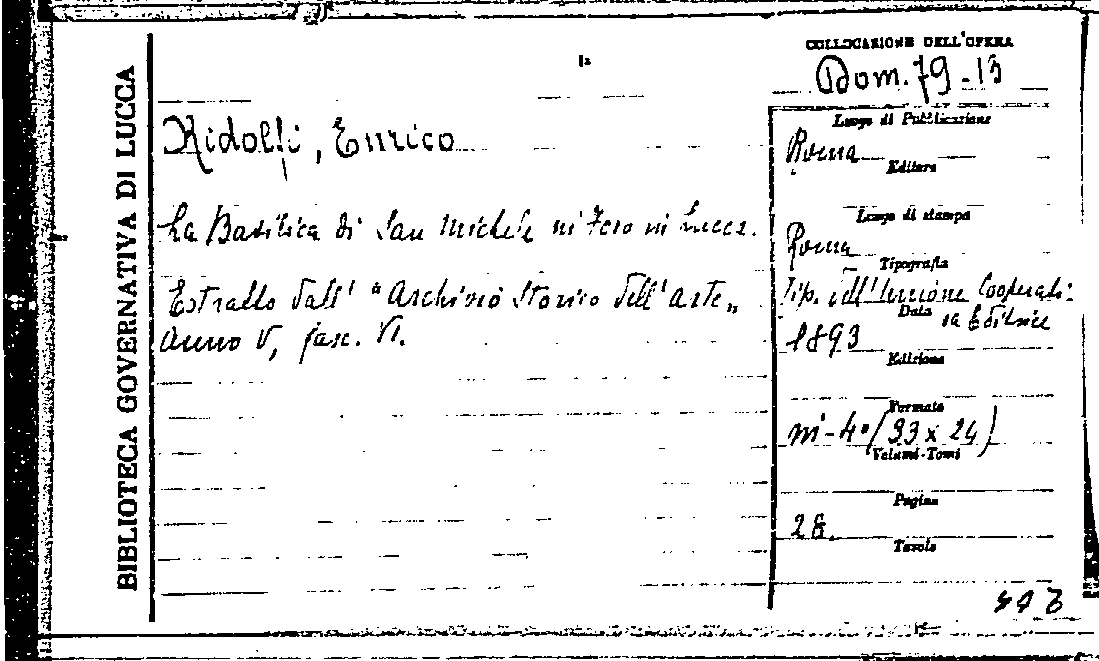 BIBLIOTECA GOVERNATIVA DI LUCCA
COLLOCAZIONE DELL'OPERA
Dom. 79-13
Ridolfi, Enrico
La Basilica di San Michele in Foro in Lucca.
Estratto dall' "Archivio Storico dell'arte„
Anno V, fasc. VI.
Luogo di Pubblicazione
Roma
Editore
Luogo di stampa
Roma
Tipografia
Tip. dell'Unione Cooperati-
va Editrice
Data
1893
Edizione
Formato
in-4° (33 x 24)
Volumi-Tomi
Pagine
28.
Tavole